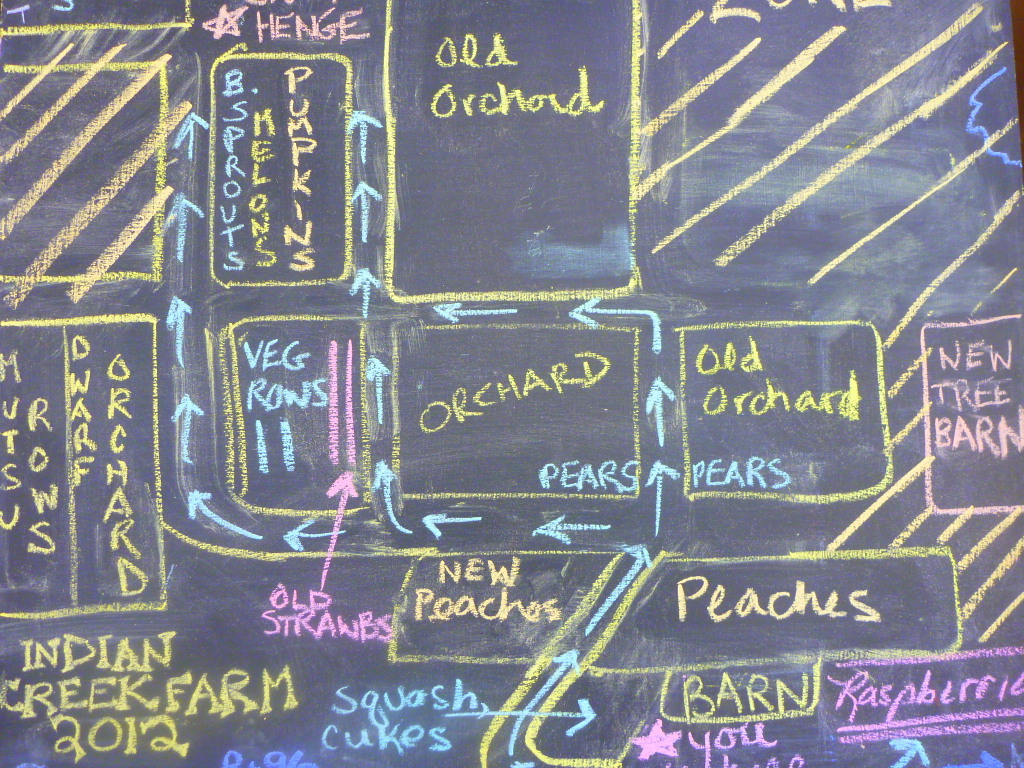 HENGE
Old
Orchard
B. SPROUTS
MELONS
PUMPKINS
VEG
ROWS
ORCHARD
PEARS
Old
Orchard
PEARS
NEW
TREE
BARN
MUTSU
ROWS
DWARF
ORCHARD
OLD
STRAWBS
NEW
Peaches
Peaches
INDIAN
CREEK FARM
2012
Squash,
cukes
BARN
Raspberrie
you